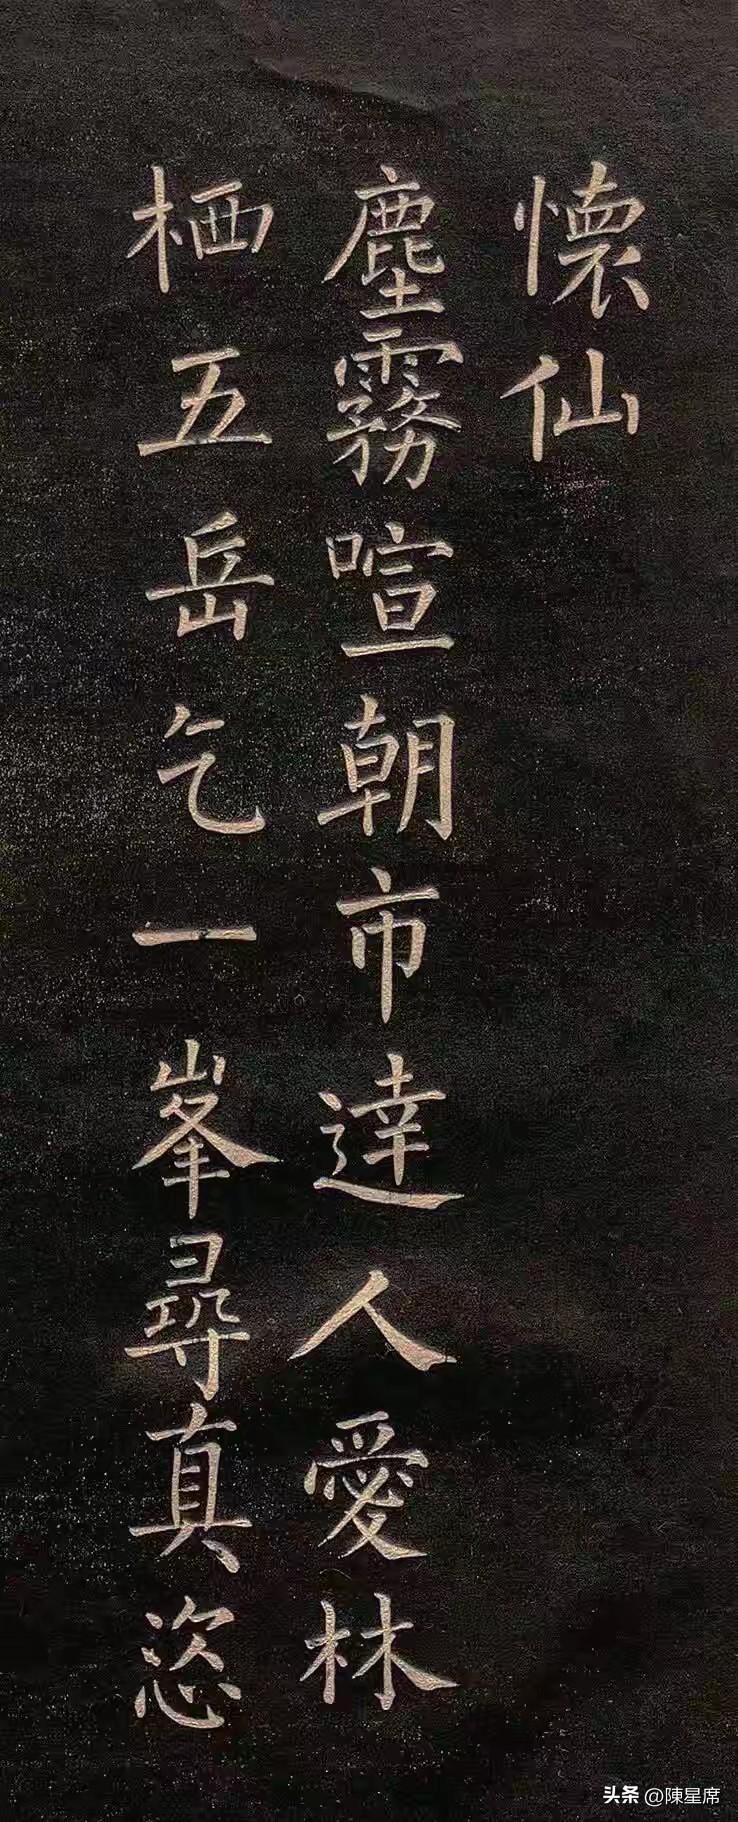 懐仙
塵霧喧朝市達人愛林
栖五岳乞一峯尋真恣
头条 @陳星席